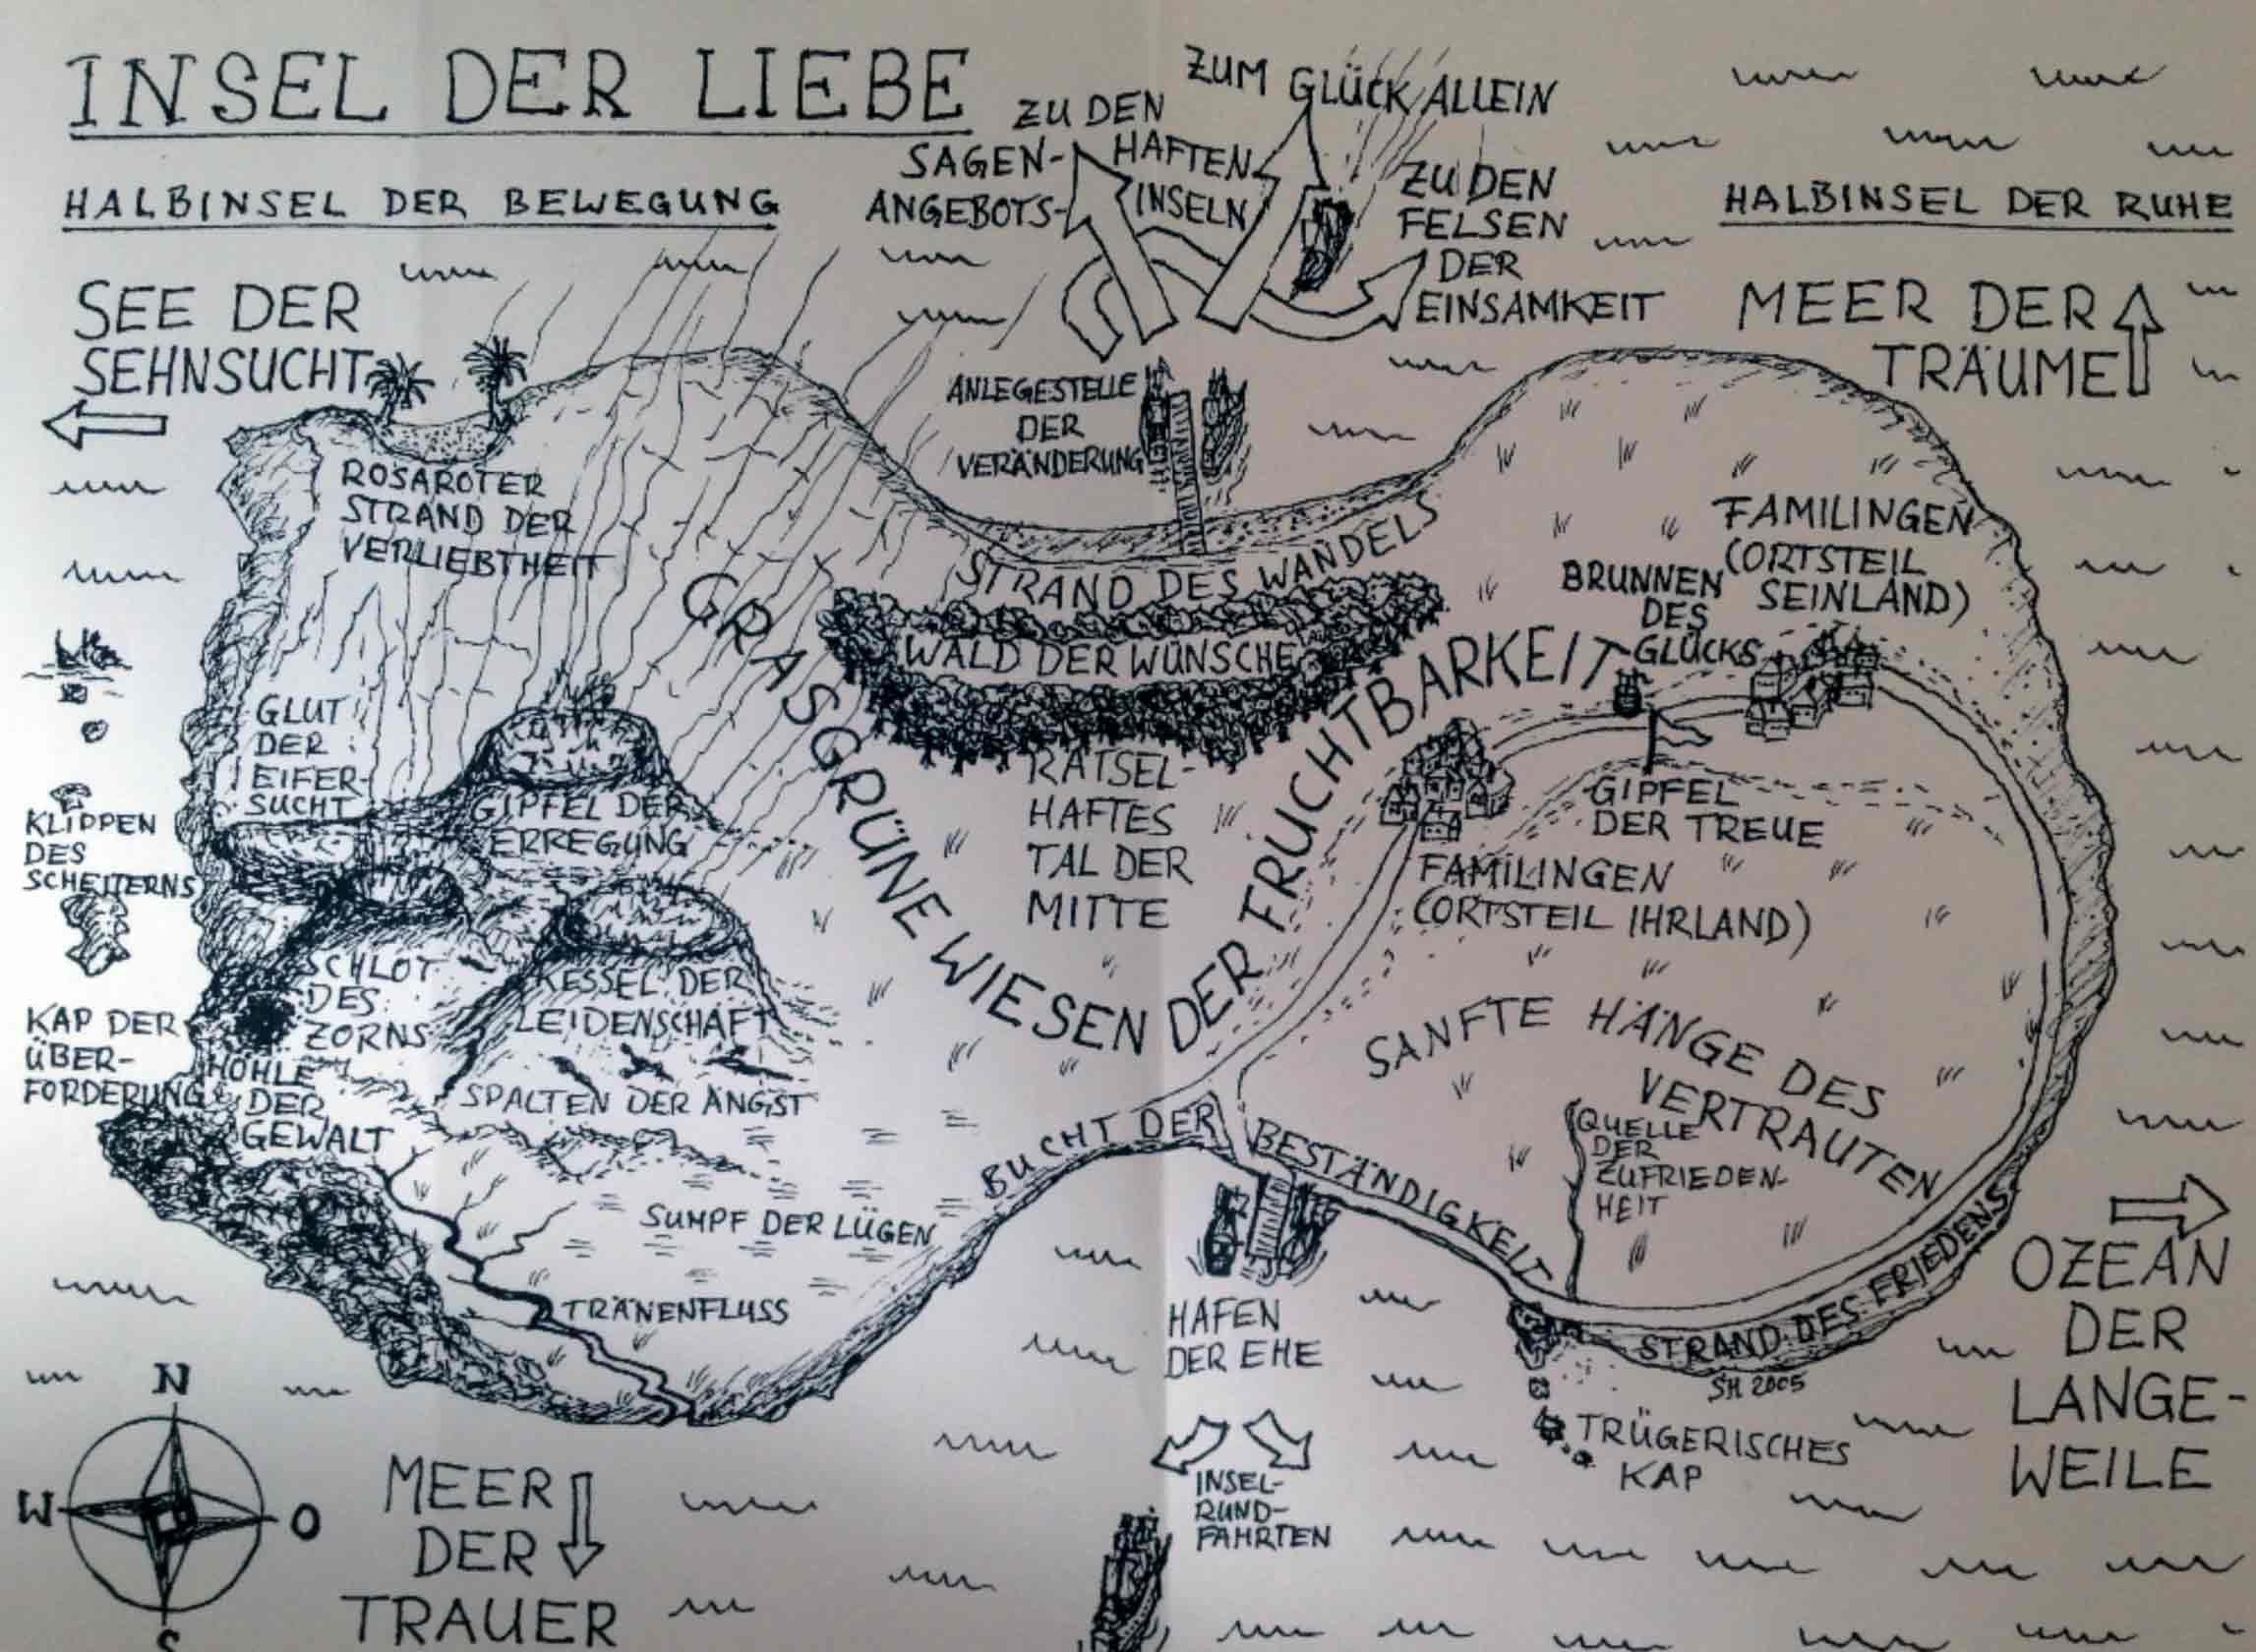 INSEL DER LIEBE
HALBINSEL DER BEWEGUNG
ZU DEN
SAGEN-
HAFTEN
ANGEBOTS-
INSELN
ZUM GLÜCK ALLEIN
ZU DEN
FELSEN
DER
EINSAMKEIT
HALBINSEL DER RUHE
SEE DER
SEHNSUCHT
MEER DER
TRÄUME
ANLEGESTELLE
DER
VERÄNDERUNG
ROSAROTER
STRAND DER
VERLIEBTHEIT
STRAND DES WANDELS
WALD DER WÜNSCHE
GRASGRÜNE WIESEN DER FRUCHTBARKEIT
FAMILINGEN
(ORTSTEIL
SEINLAND)
BRUNNEN
DES
GLÜCKS
GLUT
DER
EIFER-
SUCHT
GIPFEL DER
ERREGUNG
RÄTSEL-
HAFTES
TAL DER
MITTE
GIPFEL
DER TREUE
FAMILINGEN
(ORTSTEIL IHRLAND)
KLIPPEN
DES
SCHEITERNS
SCHLOT
DES
ZORNS
KESSEL DER
LEIDENSCHAFT
KAP DER
ÜBER-
FORDERUNG
HÖHLE
DER
GEWALT
SPALTEN DER ANGST
SANFTE HÄNGE DES
VERTRAUTEN
BUCHT DER BESTÄNDIGKEIT
QUELLE
DER
ZUFRIEDEN-
HEIT
SUMPF DER LÜGEN
TRÄNENFLUSS
HAFEN
DER EHE
STRAND DES FRIEDENS
SH 2005
OZEAN
DER
LANGE-
WEILE
TRÜGERISCHES
KAP
INSEL-
RUND-
FAHRTEN
N
W
O
S
MEER
DER
TRAUER